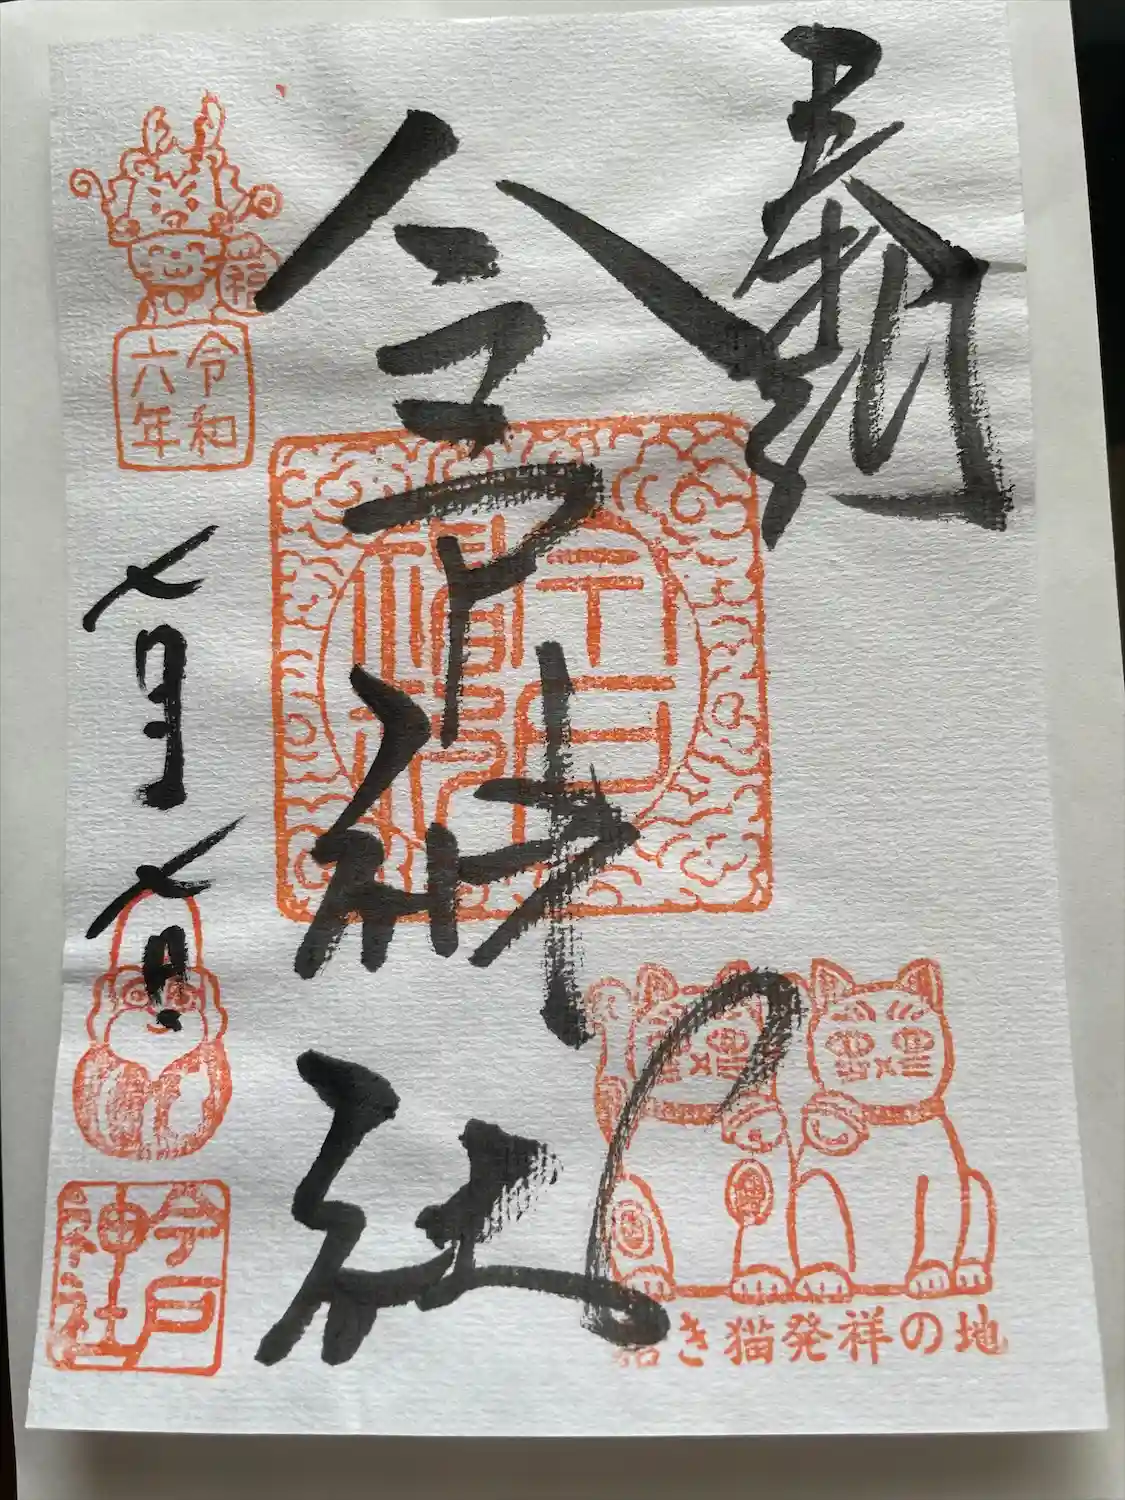 奉拝
今戸神社
福
令和
六年
七月
七日
今戸
神社
招き猫発祥の地